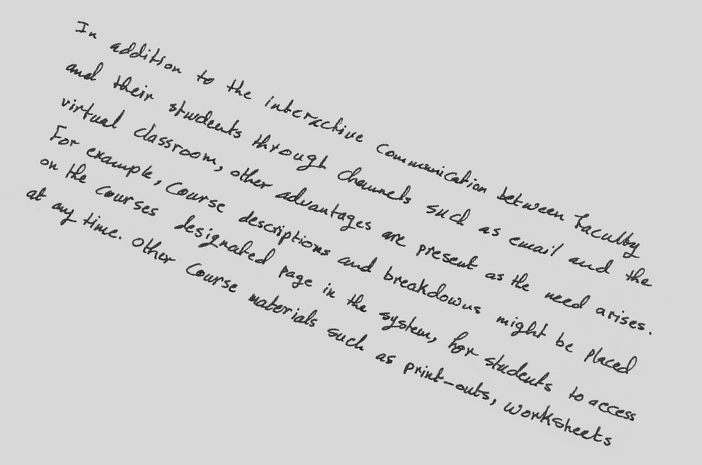 In addition to the interactive Communication between Faculty
and their students through channels such as email and the
virtual classroom, other advantages are present as the need arises.
For example, Course descriptions and breakdowns might be placed
on the courses designated page in the system, for students to access
at any time. Other Course materials such as print-outs, worksheets